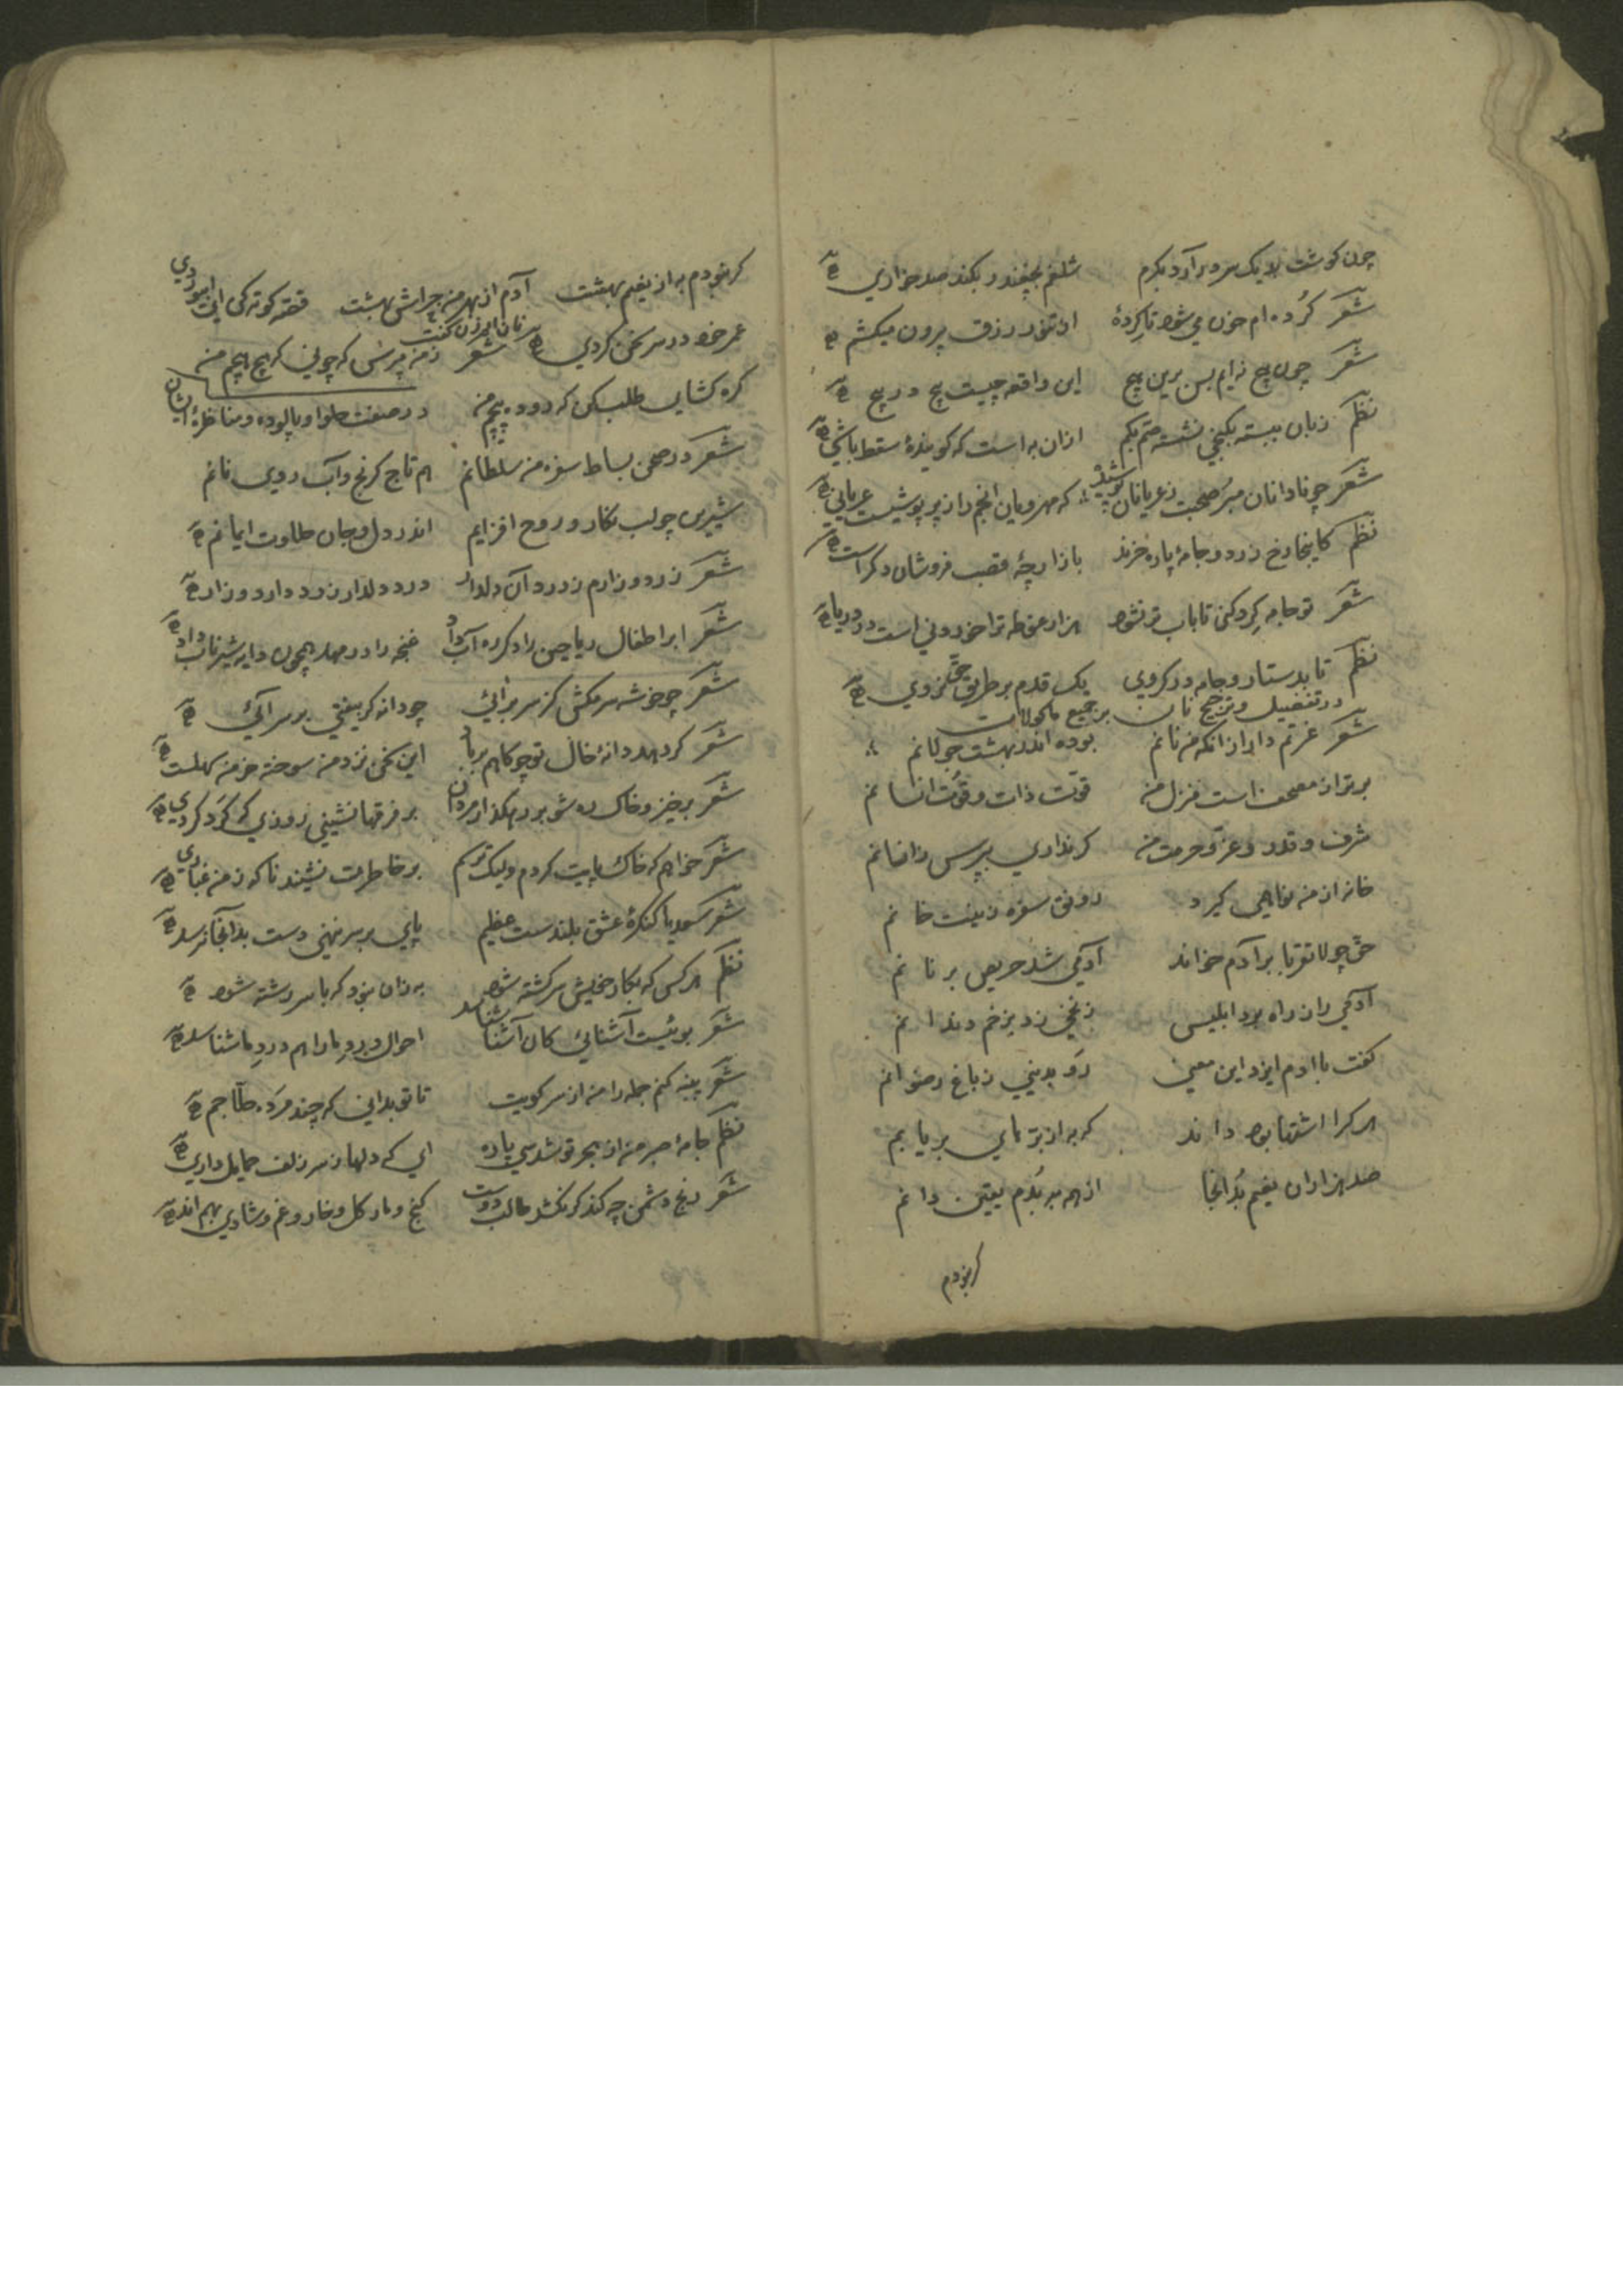 چون کوشت بلا یک سر در آرد بکرم شلغم بچغندر بکند صد خواری
شعر کُرده ام خون می شود تا کِردهٔ از تنور رزق بیرون میکشم
شعر چون هیچ نه ایم پس برین هیچ این واقعه چیست هیچ در هیچ
نظم زبان ببسته بکنجی نشسته صم بکم ازان به است که کویندهٔ سقط باشی
شعر چو نادانان مبر صحبت ز عریانان که مهرویان انجم را ز بی پوشیست عریانی
نظم کاینجا رخ زرد و جامهٔ پاره خرند بازارچهٔ قصب فروشان دکر است
شعر تو جامه کِرد کنی تا باب تر نشود هزار غوطه ترا خوردنی است در دریا
نظم تا بدستار و جامه در کروی یک قدم بر طریق حق نروی
در تفضیل و ترجیح نان بر جمیع ماکولات
شعر عزتم دار ازانکه من نانم بوده اندر بهشت جولانم
برتر از مصحف است منزل من قوّت ذات و قوت انسانم
شرف و قدر و عزّ و حرمت من کر نداری بپرس زاخوانم
خانه از من نواهی کیرد رونق سفره زینت خانم
حق چو لا تقربا بر آدم خواند آدمی شد حریص بر نانم
آدمی را ز راه برد ابلیس زخمی زد بزخم دندانم
کفت با ادم ایزد این معنی رَو بدنیی ز باغ رضوانم
هر کرا اشتها بود داند که به از بره‌ای بریانم
صد هزاران نعیم بُد آنجا از همه به بُدم یقین دانم
کر نبودم
کر نبودم به از نعیم بهشت آدم از بهر من چراش بهشت قصّه کوته کن ای ابیوردی
عمر خود در سر سخن کردی شعر ز من مپرس که چونی که هیچ هیچم من
کره کشای طلب کن که در دو پیچم من در صفت حلوا و پالوده و مناظرهٔ ایشان
شعر در صحن بساط سفره من سلطانم هم تاج کرنج و آب روی نانم
شیرین چو لب نکار و روح افزایم اندر دل و جان حلاوت ایمانم
شعر زرد و زارم ز درد آن دلدار درد دلدار زرد دارد و زار
شعر ابر اطفال ریاحین را دکر ره آب داد غنچه را در مهد همچون دایه شیر ناب داد
شعر چو خوشه سر مکش کز سر برآئی چو دانه کر بیفتی بر سر آئی
شعر کر دهد دانهٔ خال تو چو کاهم بر باد این سخن نزد من سوخته خرمن سهلست
شعر برخیز و خاک ره شو بر رهکذار مردان بر فرقها نشینی روزی که کرد کردی
شعر خواهم که خاک پایت کردم ولیک ترسم بر خاطرت نشیند ناکه ز من غباری
شعر سعدیا کنکرهٔ عشق بلندست عظیم پای بر سر نهی دست بدانجا نرسد
نظم هر کس که بکار خویش سرکشته شود به زان نبود که با سر رشته شود
شعر بوئیست آشنائی کان آشنا شناسد احوال درد ما را هم درد ما شناسد
شعر پنبه کنم جمله را من از سر کویت تا تو بدانی که چند مرده حلّاجم
نظم جامه صبر من از هجر تو شد سی پاره ای که دلها ز سر زلف حمایل داری
شعر رنج دشمن چه کند کر نکشد طالب دوست کنج و مار کل و خار و غم و شادی بهم اند